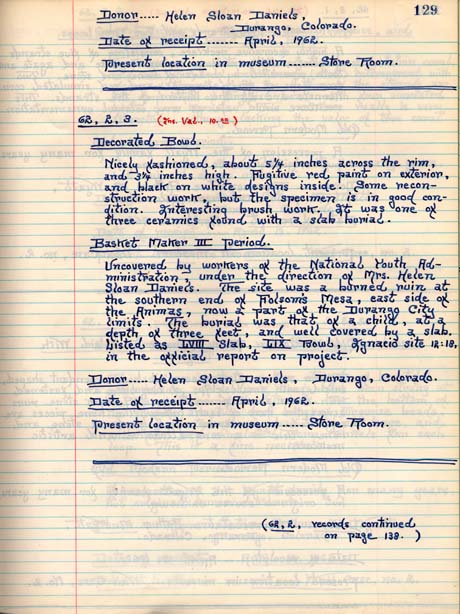 129
Donor ..... Helen Sloan Daniels,
Durango, Colorado.
Date of receipt ....... April, 1962.
Present location in museum ...... Store Room.
62, 2, 3. (Ins. Val., 10.00)
Decorated Bowl.
Nicely fashioned, about 5 1/4 inches across the rim,
and 3 1/4 inches high. Fugitive red paint on exterior,
and black on white designs inside. Some recon-
struction work, but the specimen is in good con-
dition. Interesting brush work. It was one of
three ceramics found with a slab burial.
Basket Maker III Period.
Uncovered by workers of the National Youth Ad-
ministration, under the direction of Mrs. Helen
Sloan Daniels. The site was a burned ruin at
the southern end of Folsom's Mesa, east side of
the Animas, now a part of the Durango City
limits. The burial was that of a child, at a
depth of three feet, and well covered by a slab.
Listed as LVIII Slab, LIX Bowl, Ignacio site 12:18,
in the official report on project.
Donor ..... Helen Sloan Daniels, Durango, Colorado.
Date of receipt ...... April, 1962.
Present location in museum .... Store Room.
(62, 2, records continued
on page 138. )